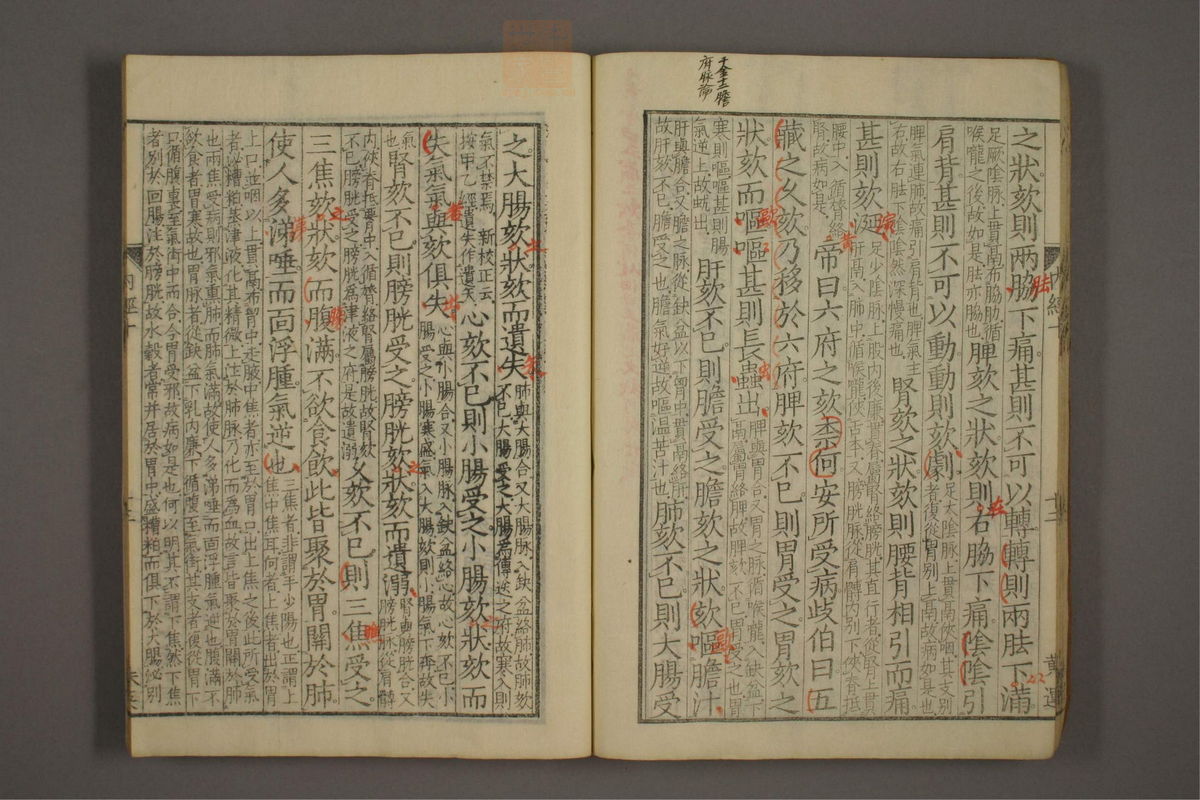 千金十一膽
府脉論
之狀欬則兩脇下痛甚則不可以轉轉則兩胠下滿
足厥陰脉上貫鬲布脇肋循
喉嚨之後故如是胠亦脇也
脾欬之狀欬則右脇下痛陰陰引
肩背甚則不可以動動則欬劇
足太陰脉上貫鬲俠咽其支別
者復從胃別上鬲故病如是也
脾氣連肺故痛引肩背也脾氣主
右故右胠下陰陰然深慢痛也
腎欬之狀欬則腰背相引而痛
甚則欬涎
足少陰脉上股內後廉貫脊屬腎絡膀胱其直行者從腎上貫
肝鬲入肺中循喉嚨俠舌本又膀胱脉從肩髆內別下俠脊抵
腰中入循膂絡
腎故病如是
帝曰六府之欬柰何安所受病歧伯曰五
藏之久欬乃移於六府脾欬不已則胃受之胃欬之
狀欬而嘔嘔甚則長蟲出
脾與胃合又胃之脉循喉嚨入缺盆下
鬲屬胃絡脾故脾欬不已胃受之也胃
寒則嘔嘔甚則腸
氣逆上故蚘出
肝欬不已則膽受之膽欬之狀欬嘔膽汁
肝與膽合又膽之脉從缺盆以下胷中貫鬲絡肝
故肝欬不已膽受之也膽氣好逆故嘔溫苦汁也
肺欬不已則大腸受
之大腸欬狀欬而遺失
肺與大腸合又大腸脉入缺盆絡肺故肺欬
不已大腸受之大腸為傳送之府故寒入則
氣不禁焉新校正云
按甲乙經遺失作遺矢
心欬不已則小腸受之小腸欬狀欬而
失氣氣與欬俱失
心與小腸合又小腸脉入缺盆絡心故心欬不已小
腸受之小腸寒盛氣入大腸欬則小腸氣下奔故失
氣
也
腎欬不已則膀胱受之膀胱欬狀欬而遺溺
腎與膀胱合又
膀胱脉從肩髆
內俠脊抵腰中入循膂絡腎屬膀胱故腎欬
不已膀胱受之膀胱為津液之府是故遺溺
久欬不已則三焦受之
三焦欬狀欬而腹滿不欲食飲此皆聚於胃關於肺
使人多涕唾而面浮腫氣逆也
三焦者非謂手少陽也正謂上
焦中焦耳何者上焦者出於胃
上口並咽以上貫鬲布胷中走腋中焦者亦至於胃口出上焦之後此所受氣
者泌糟粕蒸津液化其精微上注於肺脉乃化而為血故言皆聚於胃關於肺
也兩焦受病則邪氣熏肺而肺氣滿故使人多涕唾而面浮腫氣逆也腹滿不
欲飲食者胃寒故也胃脉者從缺盆下乳內廉下循腹至氣街其支者復從胃下
口循腹裏至氣街中而合今胃受邪故病如是也何以明其不謂下焦然下焦
者別於回腸注於膀胱故水穀者常并居於胃中盛糟粕而俱下於大腸泌別
內經十